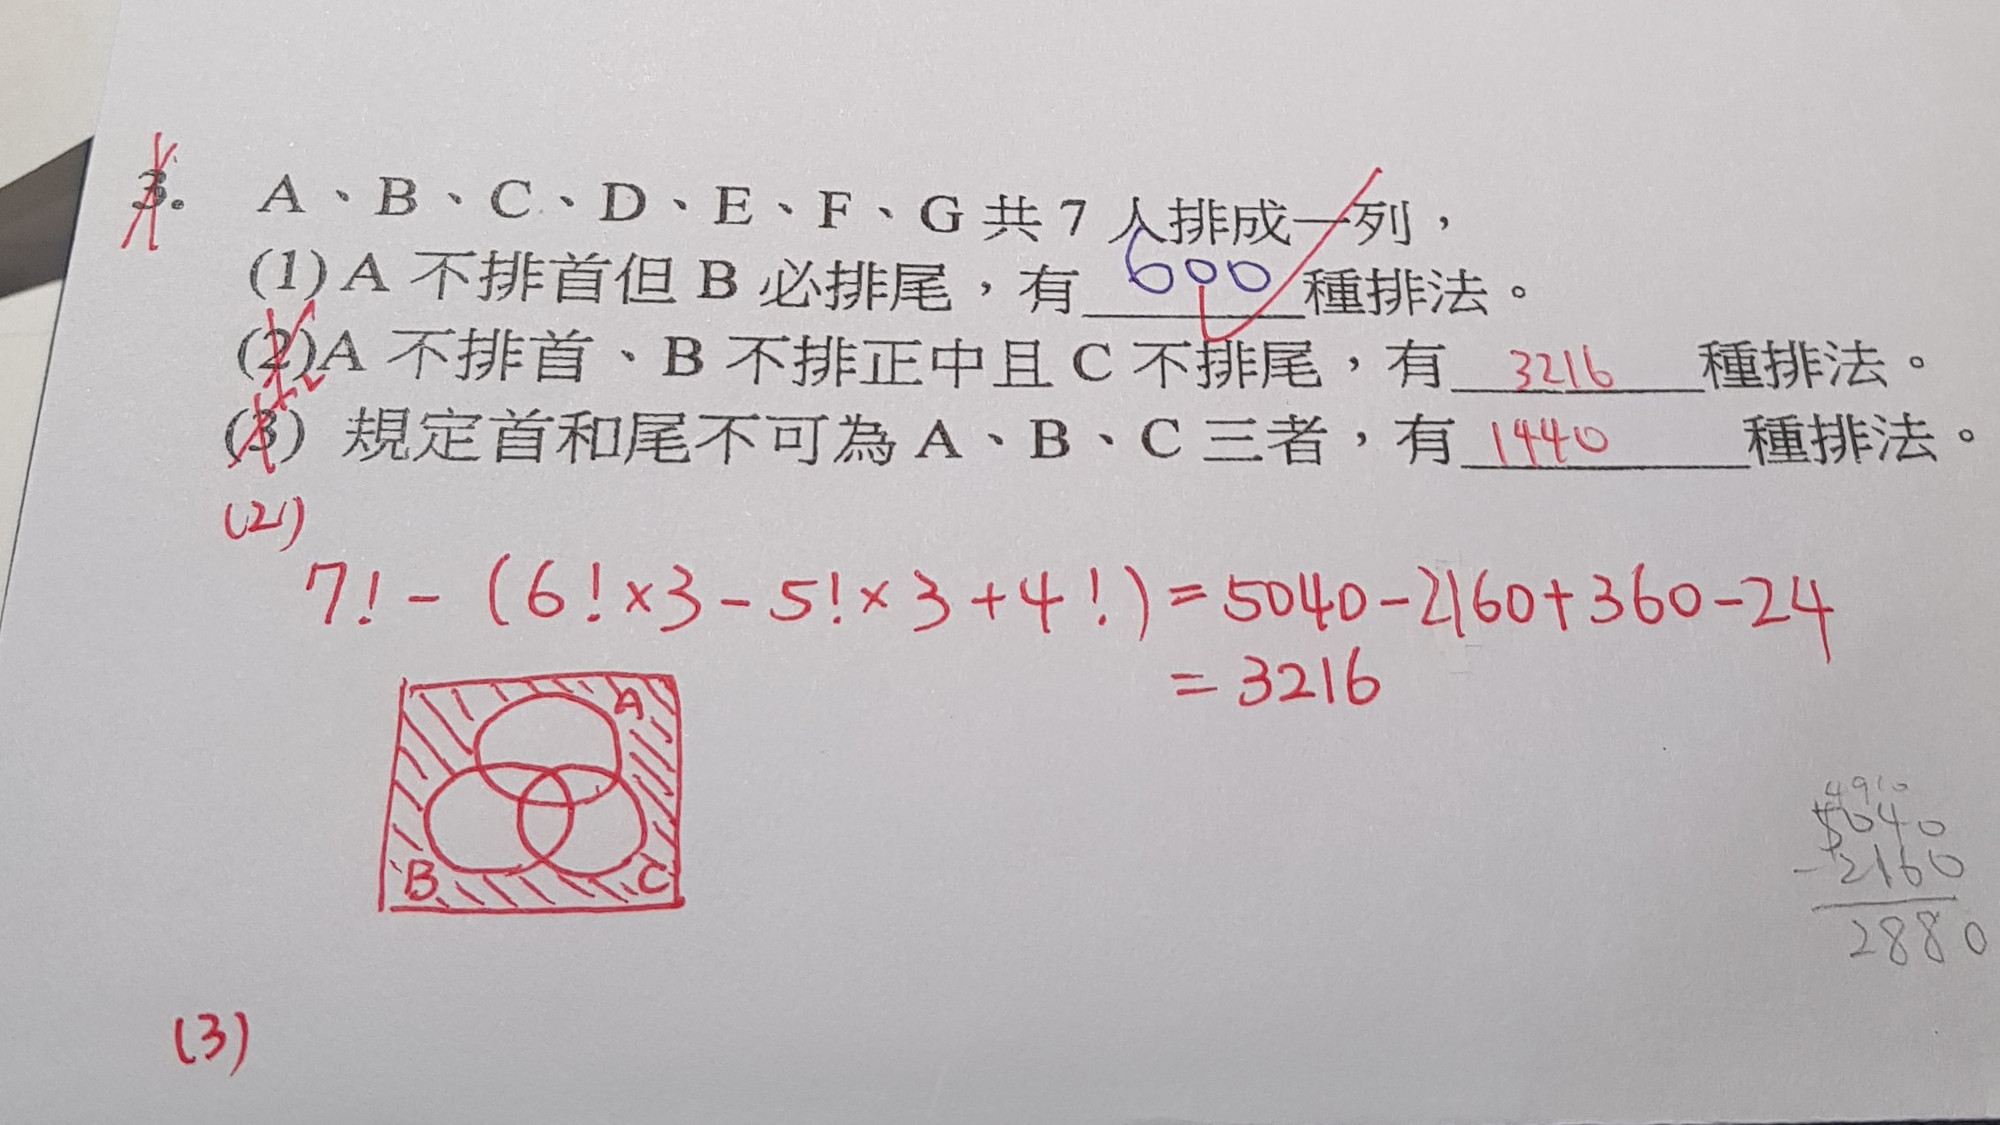 3. A、B、C、D、E、F、G 共 7 人排成一列，
(1) A 不排首但 B 必排尾，有 600 種排法。
(2) A 不排首、B 不排正中且 C 不排尾，有 3216 種排法。
(3) 規定首和尾不可為 A、B、C 三者，有 1440 種排法。
(2)
7! - (6! × 3 - 5! × 3 + 4!) = 5040 - 2160 + 360 - 24
= 3216
A
B C
4 9 10
5040
- 2160
2880
(3)